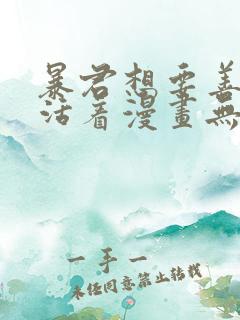 暴君想要善
活着漫畫無
一手一
未经同意禁止转载